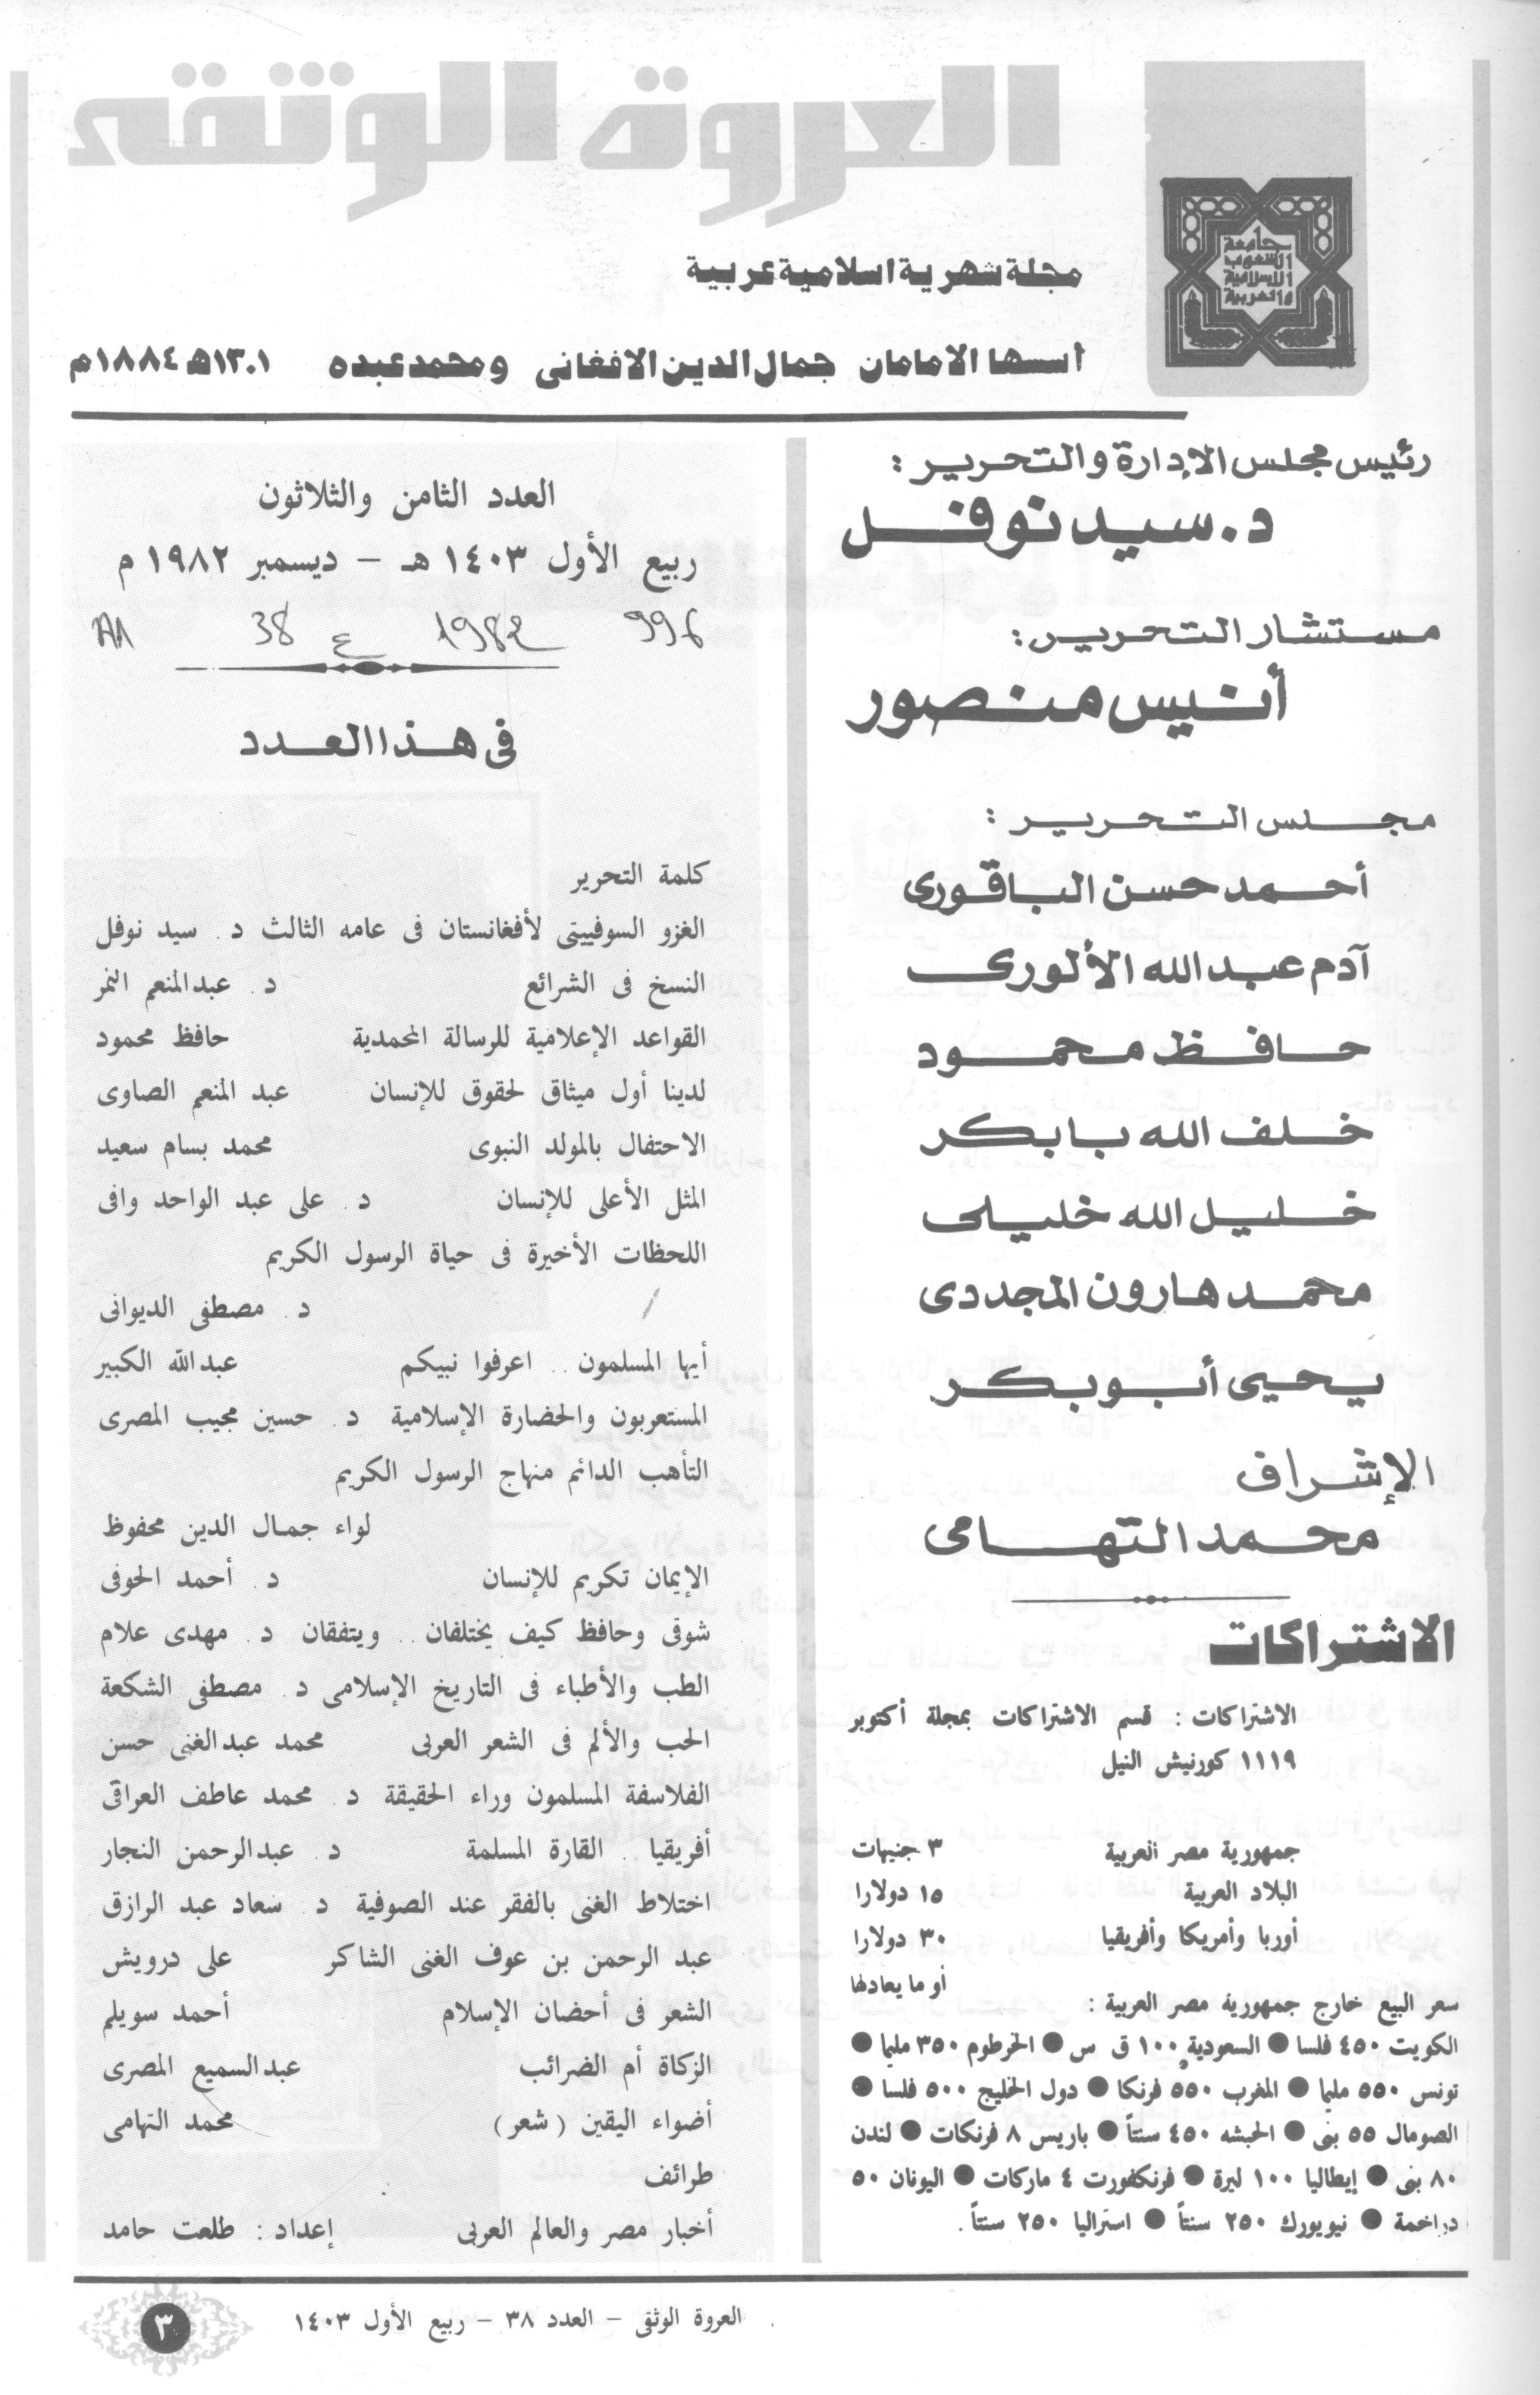 العروة الوثقى
جامعة
الشعوب
الإسلامية
والعربية
مجلة شهرية اسلامية عربية
أسسها الامامان جمال الدين الافغانى ومحمد عبده ١٣٠١هـ ١٨٨٤م
رئيس مجلس الإدارة والتحرير :
د. سيد نوفل
مستشار التحرير :
أنيس منصور
مجلس التحرير :
أحمد حسن الباقورى
آدم عبد الله الألورى
حافظ محمود
خلف الله بابكر
خليل الله خليلى
محمد هارون المجددى
يحيى أبو بكر
الإشراف
محمد التهامى
الاشتراكات
الاشتراكات : قسم الاشتراكات بمجلة أكتوبر
١١١٩ كورنيش النيل
جمهورية مصر العربية ٣ جنيهات
البلاد العربية ١٥ دولارا
أوربا وأمريكا وأفريقيا ٣٠ دولارا
أو ما يعادلها
سعر البيع خارج جمهورية مصر العربية :
الكويت ٤٥٠ فلسا ● السعودية ١٠٠ ق س ● الخرطوم ٣٥٠ مليما ●
تونس ٥٥٠ مليما ● المغرب ٥٥٠ فرنكا ● دول الخليج ٥٠٠ فلسا ●
الصومال ٥٥ بنى ● الحبشه ٤٥٠ سنتاً ● باريس ٨ فرنكات ● لندن
٨٠ بنى ● إيطاليا ١٠٠ ليرة ● فرنكفورت ٤ ماركات ● اليونان ٥٠
دراخمة ● نيويورك ٢٥٠ سنتاً ● استراليا ٢٥٠ سنتاً .
العدد الثامن والثلاثون
ربيع الأول ١٤٠٣ هـ – ديسمبر ١٩٨٢ م
996 1982 ع 38
فى هذا العدد
كلمة التحرير
الغزو السوفييتى لأفغانستان فى عامه الثالث د. سيد نوفل
النسخ فى الشرائع د. عبدالمنعم النمر
القواعد الإعلامية للرسالة المحمدية حافظ محمود
لدينا أول ميثاق لحقوق للإنسان عبد المنعم الصاوى
الاحتفال بالمولد النبوى محمد بسام سعيد
المثل الأعلى للإنسان د. على عبد الواحد وافى
اللحظات الأخيرة فى حياة الرسول الكريم
د. مصطفى الديوانى
أيها المسلمون .. اعرفوا نبيكم عبدالله الكبير
المستعربون والحضارة الإسلامية د. حسين مجيب المصرى
التأهب الدائم منهاج الرسول الكريم
لواء جمال الدين محفوظ
الإيمان تكريم للإنسان د. أحمد الحوفى
شوقى وحافظ كيف يختلفان .. ويتفقان د. مهدى علام
الطب والأطباء فى التاريخ الإسلامى د. مصطفى الشكعة
الحب والألم فى الشعر العربى محمد عبدالغنى حسن
الفلاسفة المسلمون وراء الحقيقة د. محمد عاطف العراقى
أفريقيا .. القارة المسلمة د. عبدالرحمن النجار
اختلاط الغنى بالفقر عند الصوفية د. سعاد عبد الرازق
عبد الرحمن بن عوف الغنى الشاكر على درويش
الشعر فى أحضان الإسلام أحمد سويلم
الزكاة أم الضرائب عبدالسميع المصرى
أضواء اليقين (شعر) محمد التهامى
طرائف
أخبار مصر والعالم العربى إعداد : طلعت حامد
العروة الوثقى – العدد ٣٨ – ربيع الأول ١٤٠٣
٣